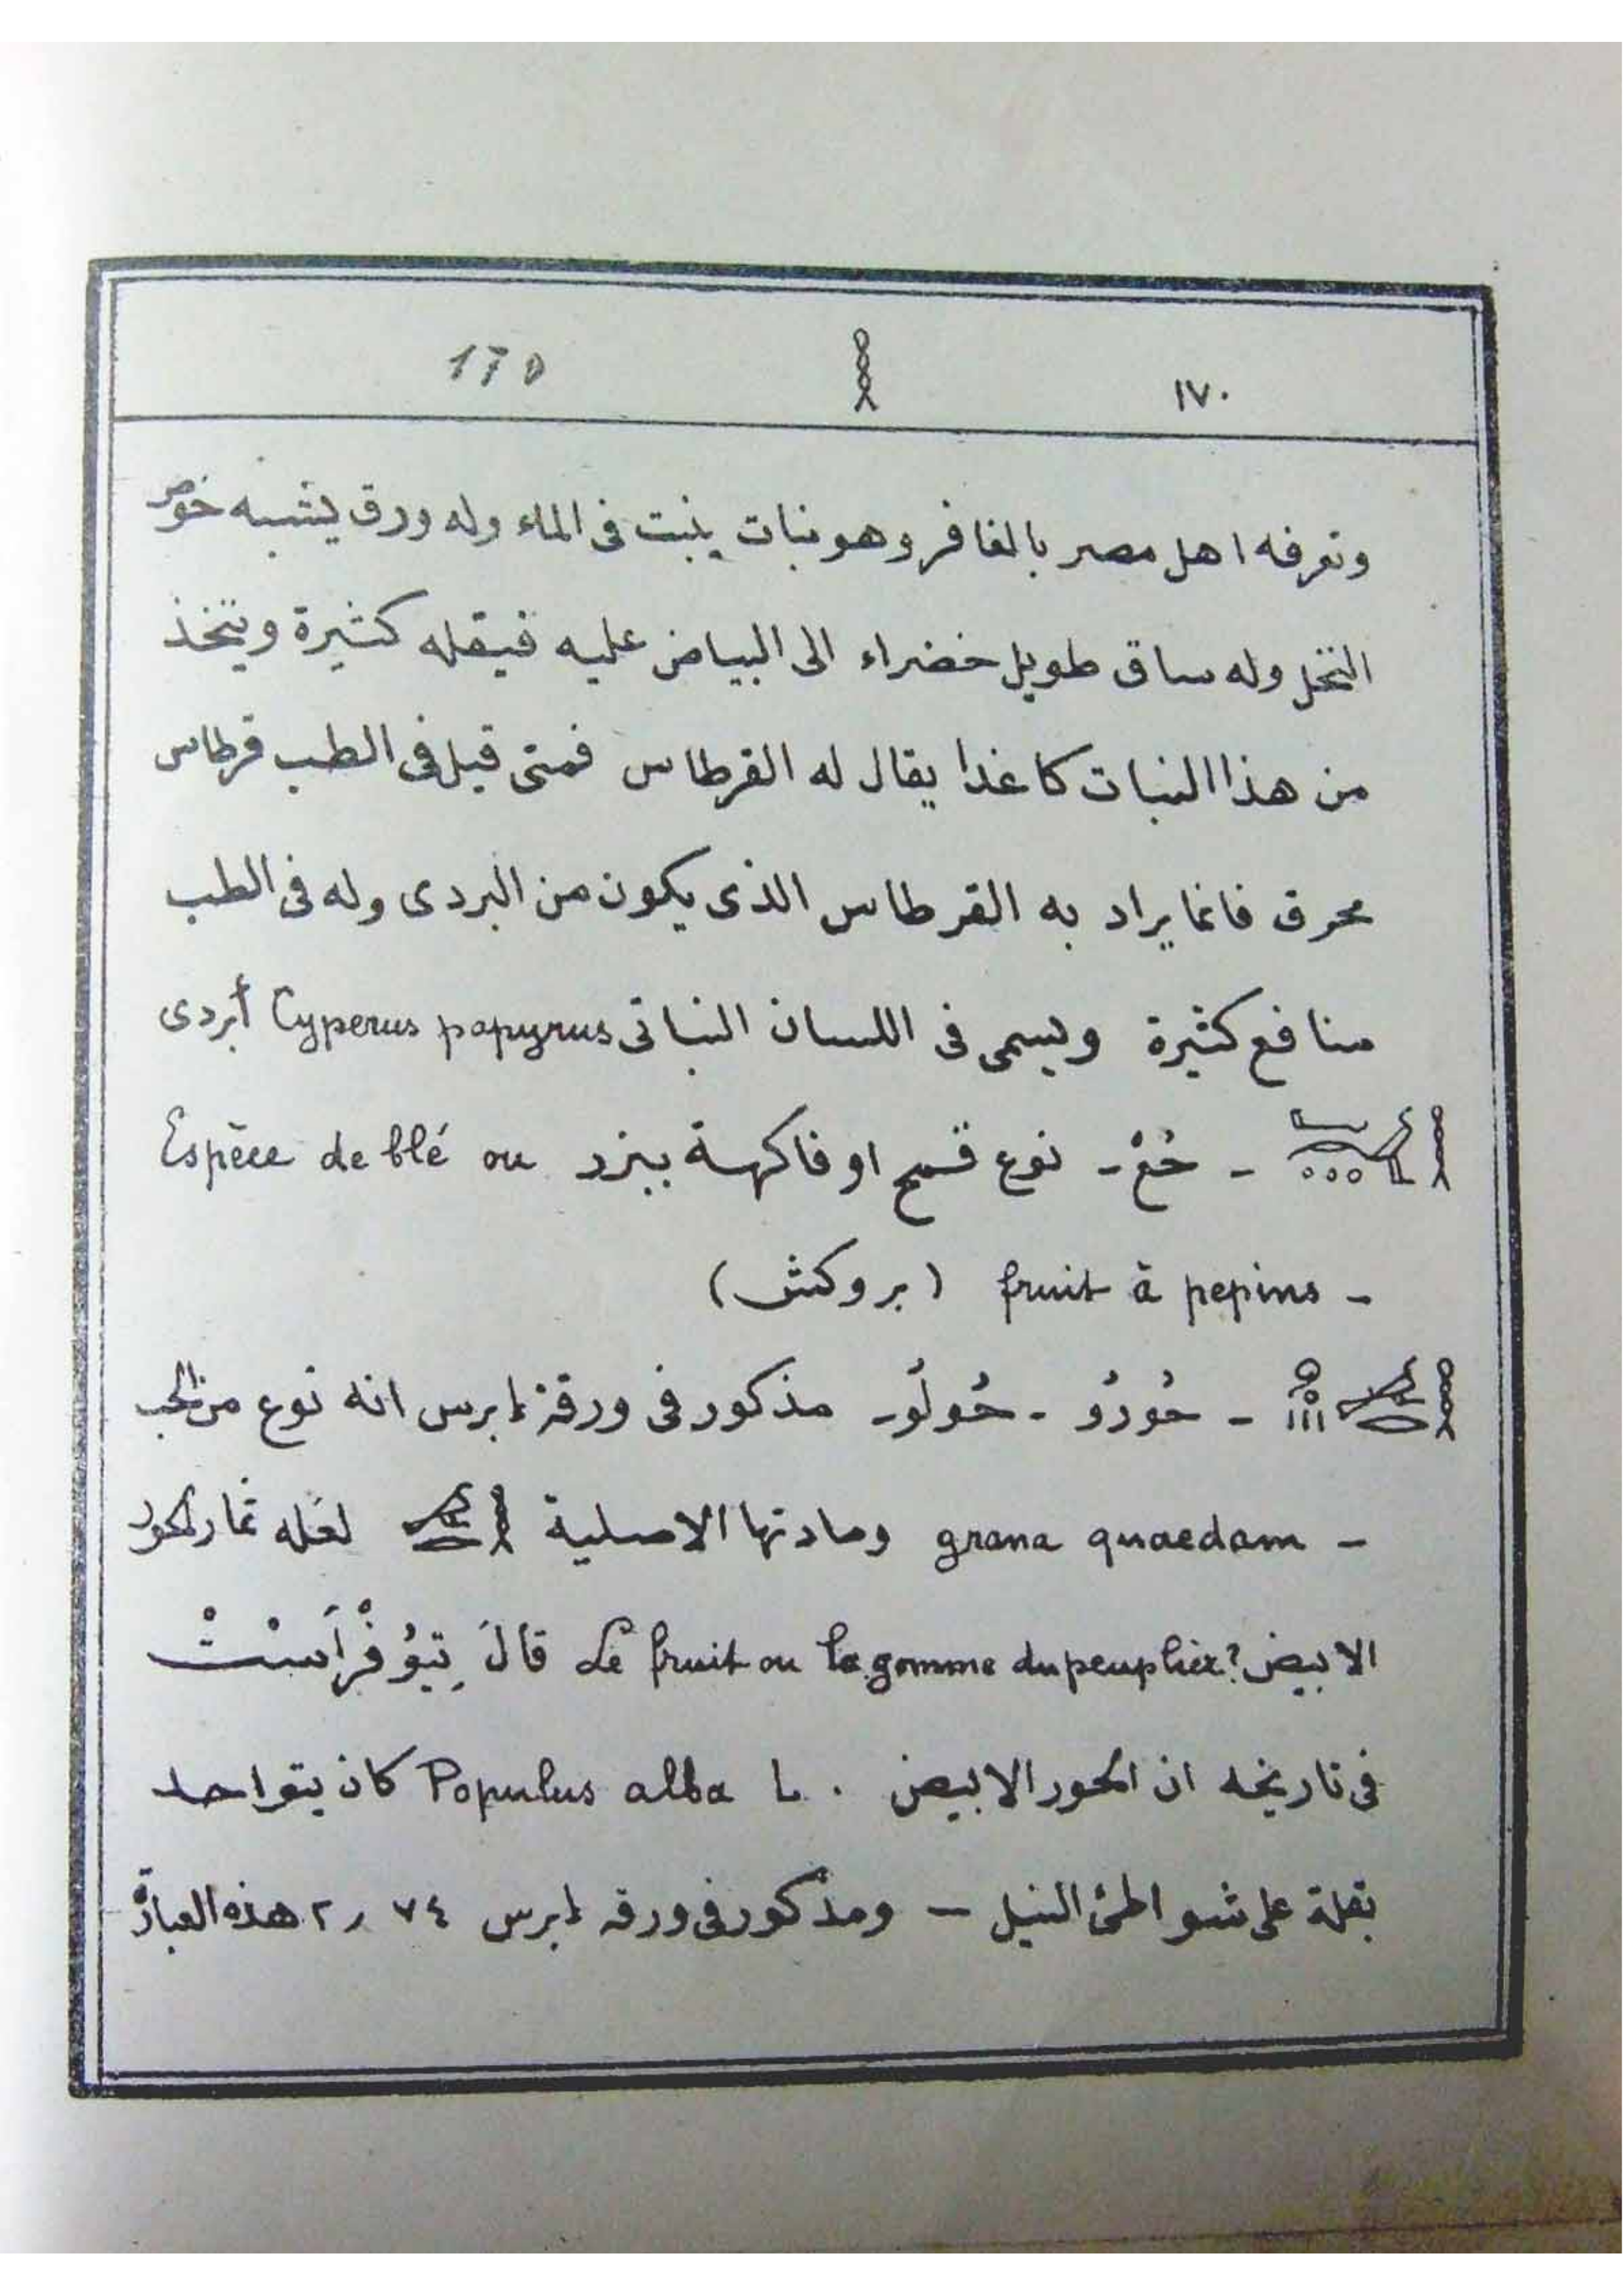 ١٧٠ 𓎛 170
وتعرفه اهل مصر بالغافر وهو نبات ينبت فى الماء وله ورق يشبه خوص
النخل وله ساق طويل خضراء الى البياض عليه فيقله كثيرة ويتخذ
من هذا النبات كاغدا يقال له القرطاس فمتى قيل فى الطب قرطاس
محرق فانما يراد به القرطاس الذى يكون من البردى وله فى الطب
منافع كثيرة ويسمى فى اللسان النباتى Cyperus papyrus أبردى
- حُعْ - نوع قمح او فاكهة ببزر Espèce de blé ou
- fruit à pepins (بروكش)
- حُورُو - حُولُو - مذكور فى ورقة إبرس انه نوع من الحب
- grana quaedam ومادتها الاصلية لعله ثمار الحور
الابيض? Le fruit ou la gomme du peuplier قالَ تِيُوُفْرَاسْتْ
فى تاريخه ان الحور الابيض . Populus alba L كان يتواجد
بقلة على شواطئ النيل — ومذكور فى ورقه إبرس ٧٤ ر ٢ هذه العبارة